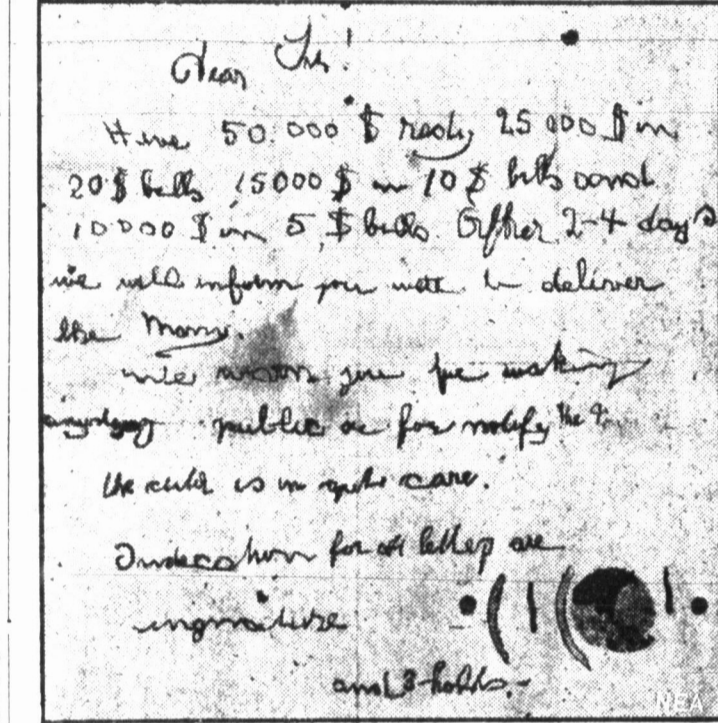 Dear Sir!
Have 50.000 $ redy 25000 $ in
20 $ bills 15000 $ in 10 $ bills and
10000 $ in 5 $ bills. After 2-4 days
we will inform you were to deliver
the Mony.
We warn you for making
anyding public or for notify the P.
the child is in gute care.
Indication for all letters are
singnature
and 3 holds.
NEA